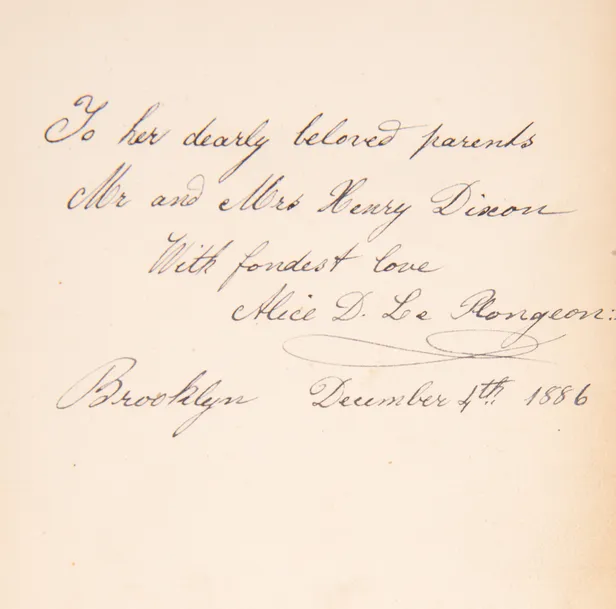 To her dearly beloved parents
Mr and Mrs Henry Dixon
With fondest love
Alice D. Le Plongeon:
Brooklyn December 4th 1886